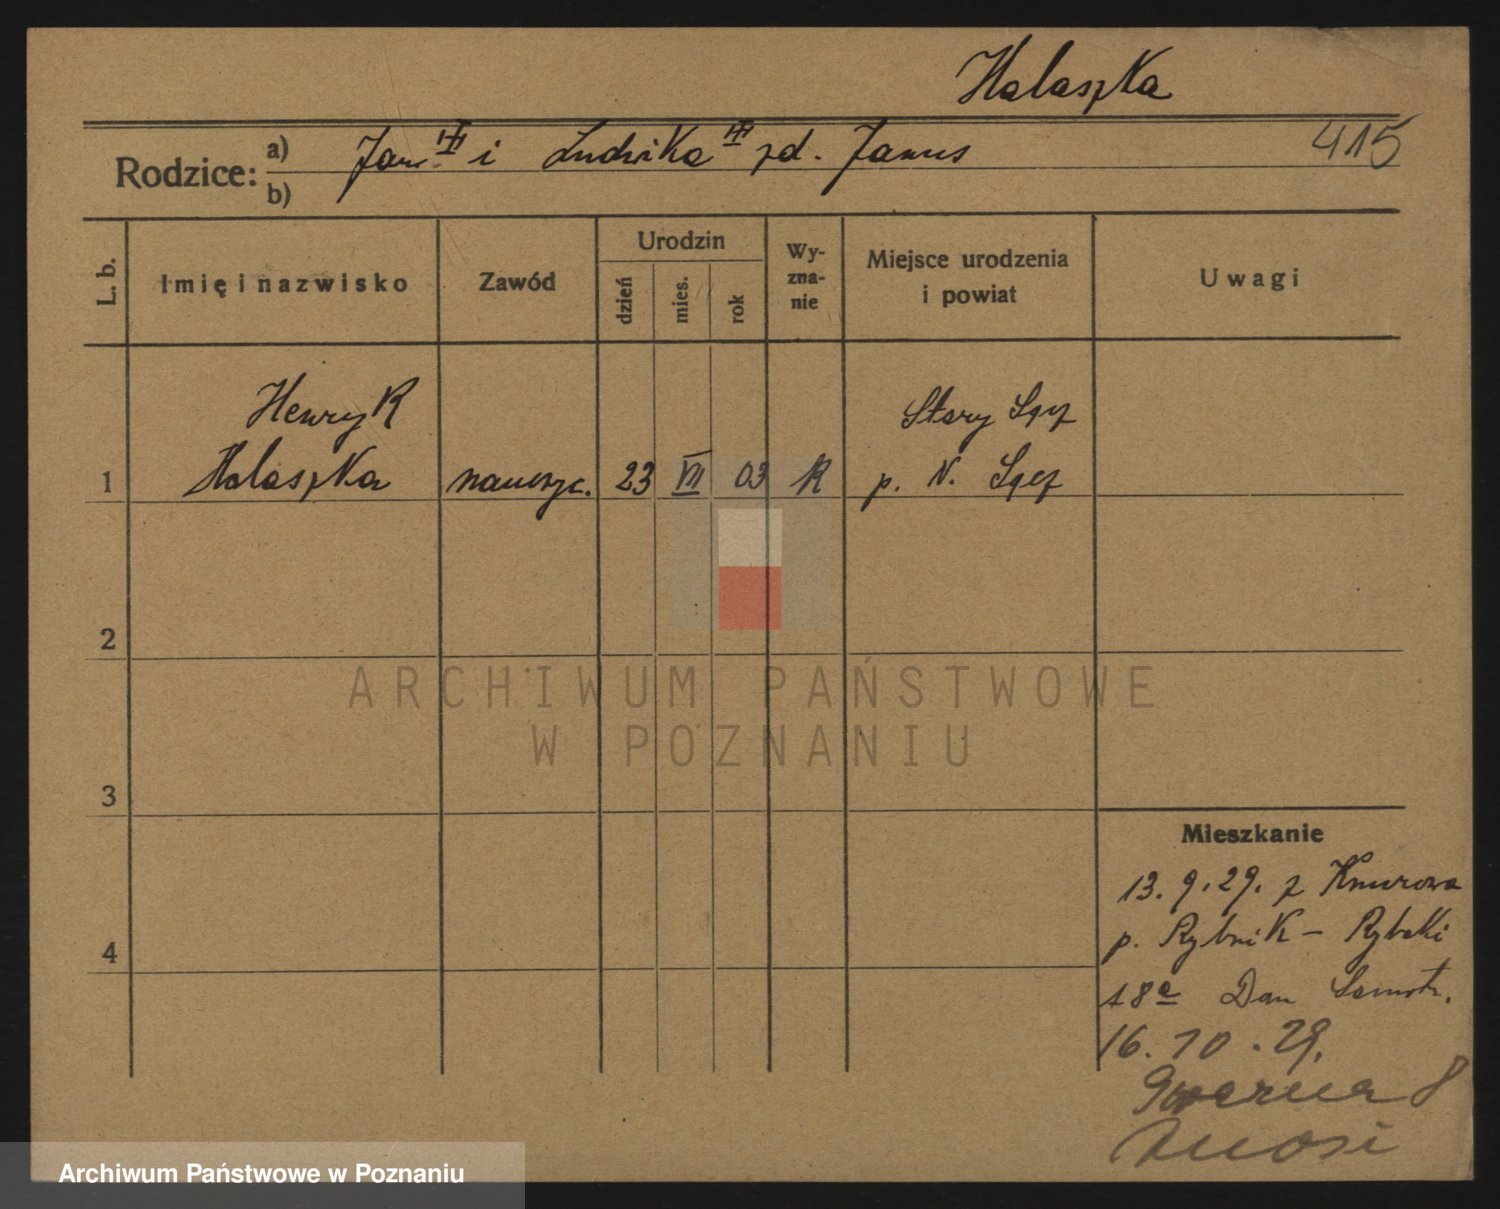 Halaszka
415
Rodzice:
a) Jan i Ludwika zd. Janus
b)
L. b.
Imię i nazwisko
Zawód
Urodzin
dzień
mies.
rok
Wy-
zna-
nie
Miejsce urodzenia
i powiat
Uwagi
Henryk
Stary Sącz
1 Halaszka nauczyc. 23 VII 03 R p. N. Sącz
2
3
4
ARCHIWUM PAŃSTWOWE
W POZNANIU
Mieszkanie
13. 9. 29. z Knurowa
p. Rybnik – Rybaki
18a Dom
16. 10. 29.
8
Archiwum Państwowe w Poznaniu